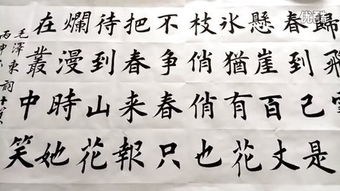 歸飛雪
春到已是
懸崖百丈
氷猶有花
枝俏俏也
不争春只
把春来報
待到山花
爛漫時她
在叢中笑
毛澤東詞
丙申